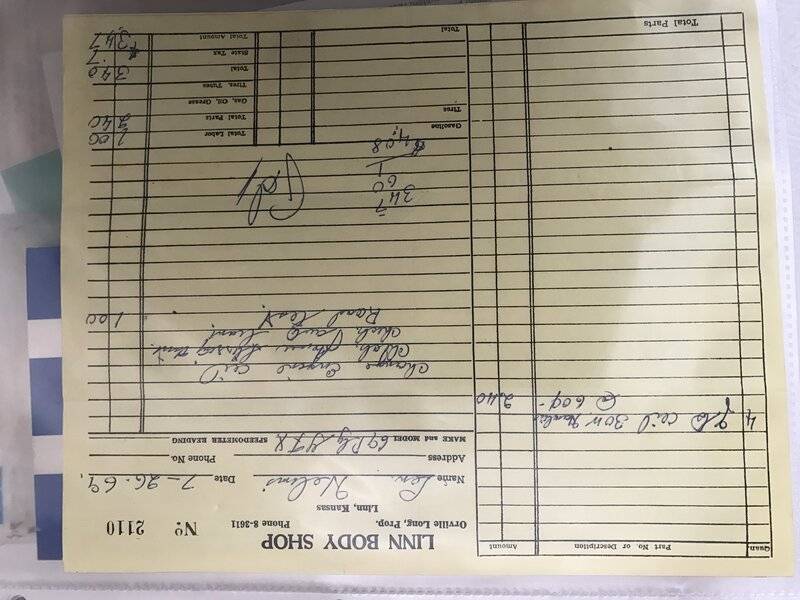 LINN BODY SHOP
Nº 2110
Orville Long, Prop.
Phone 8-3611
Linn, Kansas
Name Len Helms Date 7-26-69
Address Phone No.
MAKE and MODEL 69 Ply GTX SPEEDOMETER READING
Change Engine Oil
Check
Check
Road test 1 00
Pd
3 47
60
1
$4.08
Gasoline
Tires
Total
Total Labor 1 00
Total Parts 2 40
Gas, Oil, Grease
Tires, Tubes
Total 3 40
State Tax 7
Total Amount $3 47
Quan. Part No. or Description Amount
4 qts oil 30w
@ 60¢ 2.40
Total Parts